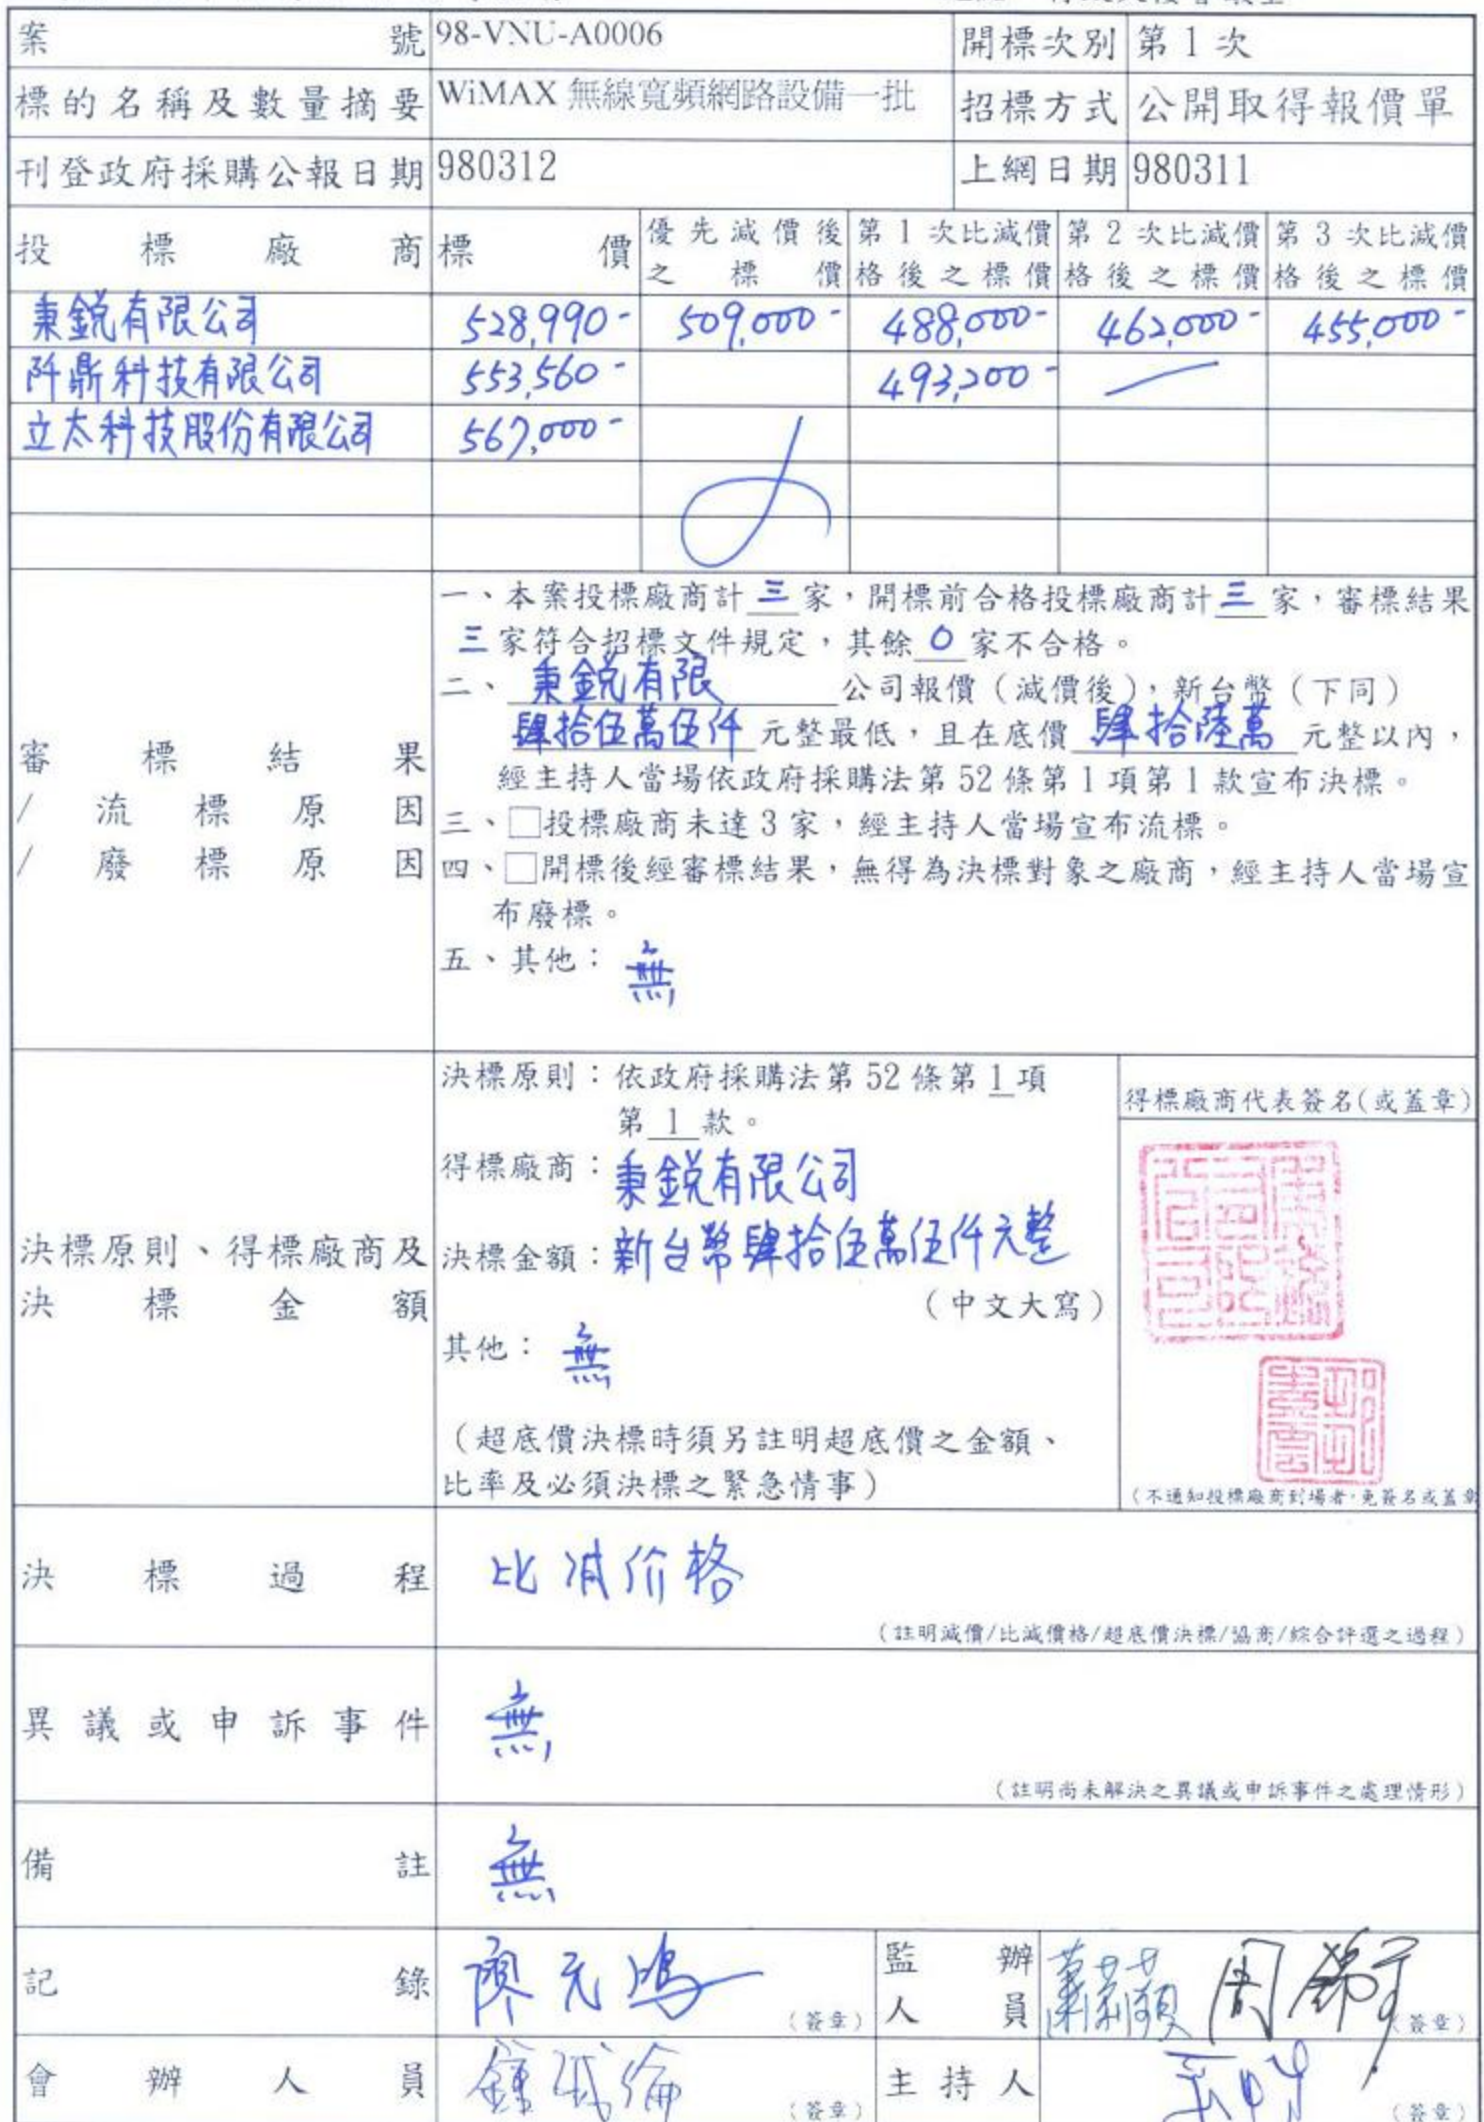 案 號 98-VNU-A0006 開標次別 第 1 次
標的名稱及數量摘要 WiMAX 無線寬頻網路設備一批 招標方式 公開取得報價單
刊登政府採購公報日期 980312 上網日期 980311
投標廠商 標價 優先減價後之標價 第 1 次比減價格後之標價 第 2 次比減價格後之標價 第 3 次比減價格後之標價
秉銳有限公司 528,990- 509,000- 488,000- 462,000- 455,000-
阡鼎科技有限公司 553,560- 493,200-
立太科技股份有限公司 567,000-
審標結果
/流標原因
/廢標原因
一、本案投標廠商計三家,開標前合格投標廠商計三家,審標結果
三家符合招標文件規定,其餘 0 家不合格。
二、秉銳有限公司報價(減價後),新台幣(下同)
肆拾伍萬伍仟元整最低,且在底價肆拾陸萬元整以內,
經主持人當場依政府採購法第 52 條第 1 項第 1 款宣布決標。
三、□投標廠商未達 3 家,經主持人當場宣布流標。
四、□開標後經審標結果,無得為決標對象之廠商,經主持人當場宣
布廢標。
五、其他:無
決標原則、得標廠商及
決標金額
決標原則:依政府採購法第 52 條第 1 項
第 1 款。
得標廠商:秉銳有限公司
決標金額:新台幣肆拾伍萬伍仟元整
(中文大寫)
其他:無
(超底價決標時須另註明超底價之金額、
比率及必須決標之緊急情事)
得標廠商代表簽名(或蓋章)
(不通知投標廠商到場者,免簽名或蓋章
決標過程 比減价格
(註明減價/比減價格/超底價決標/協商/綜合評選之過程)
異議或申訴事件 無
(註明尚未解決之異議或申訴事件之處理情形)
備註 無
記錄 廖元鴻 (簽章) 監辦人員 (簽章)
會辦人員 (簽章) 主持人 (簽章)